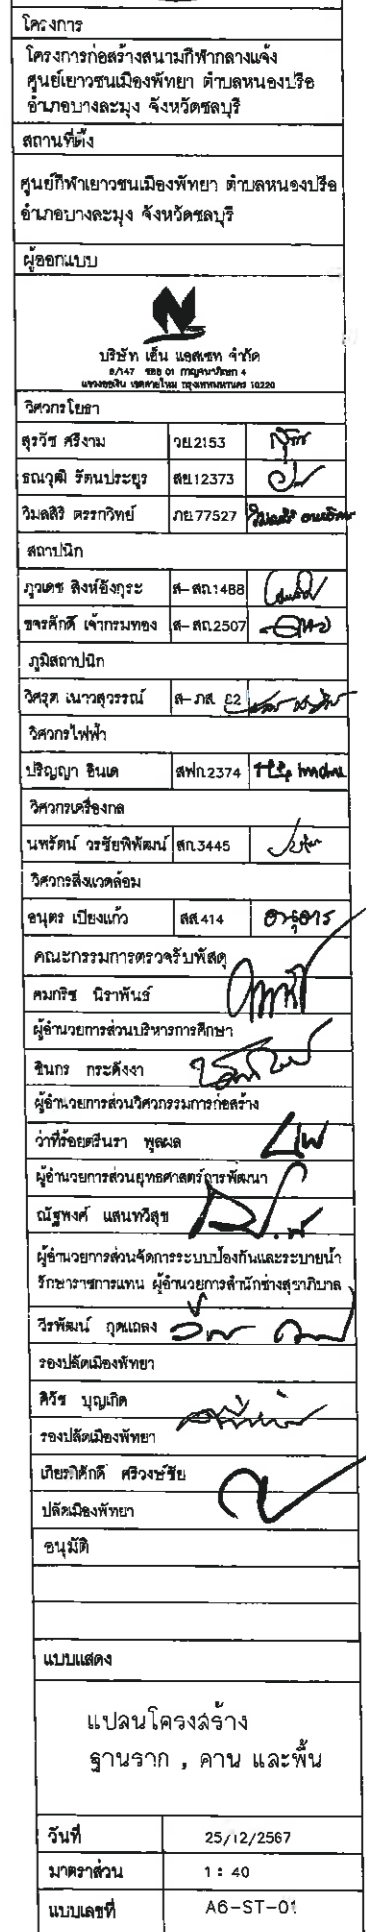 โครงการ
โครงการก่อสร้างสนามกีฬากลางแจ้ง
ศูนย์เยาวชนเมืองพัทยา ตำบลหนองปรือ
อำเภอบางละมุง จังหวัดชลบุรี
สถานที่ตั้ง
ศูนย์กีฬาเยาวชนเมืองพัทยา ตำบลหนองปรือ
อำเภอบางละมุง จังหวัดชลบุรี
ผู้ออกแบบ
N
บริษัท เอ็น แอสเซท จำกัด
8/147 ซอย 01 กาญจนาภิเษก 4
แขวงออเงิน เขตสายไหม กรุงเทพมหานคร 10220
วิศวกรโยธา
สุรวัช ศรีงาม วย.2153
ธณวุฒิ รัตนประยูร สย.12373
วิมลสิริ ตรรกวิทย์ ภย.77527
สถาปนิก
ภูวเดช สิงห์อังกุระ ส-สถ.1488
ขจรศักดิ์ เจ้ากรมทอง ส-สถ.2507
ภูมิสถาปนิก
วิศรุต เนาวสุวรรณ์ ส-ภส. 82
วิศวกรไฟฟ้า
ปริญญา อินเด สฟก.2374
วิศวกรเครื่องกล
นพรัตน์ วรชัยพิพัฒน์ สก.3445
วิศวกรสิ่งแวดล้อม
อนุตร เปียงแก้ว สส.414
คณะกรรมการตรวจรับพัสดุ
คมกริช นิราพันธ์
ผู้อำนวยการส่วนบริหารการศึกษา
ชินกร กระดังงา
ผู้อำนวยการส่วนวิศวกรรมการก่อสร้าง
ว่าที่ร้อยตรีนรา พูลผล
ผู้อำนวยการส่วนยุทธศาสตร์การพัฒนา
ณัฐพงศ์ แสนทวีสุข
ผู้อำนวยการส่วนจัดการระบบป้องกันและระบายน้ำ
รักษาราชการแทน ผู้อำนวยการสำนักช่างสุขาภิบาล
วีรพัฒน์ กุดแถลง
รองปลัดเมืองพัทยา
ศิวัช บุญเกิด
รองปลัดเมืองพัทยา
เกียรติศักดิ์ ศรีวงษ์ชัย
ปลัดเมืองพัทยา
อนุมัติ
แบบแสดง
แปลนโครงสร้าง
ฐานราก , คาน และพื้น
วันที่ 25/12/2567
มาตราส่วน 1 : 40
แบบเลขที่ A6-ST-01